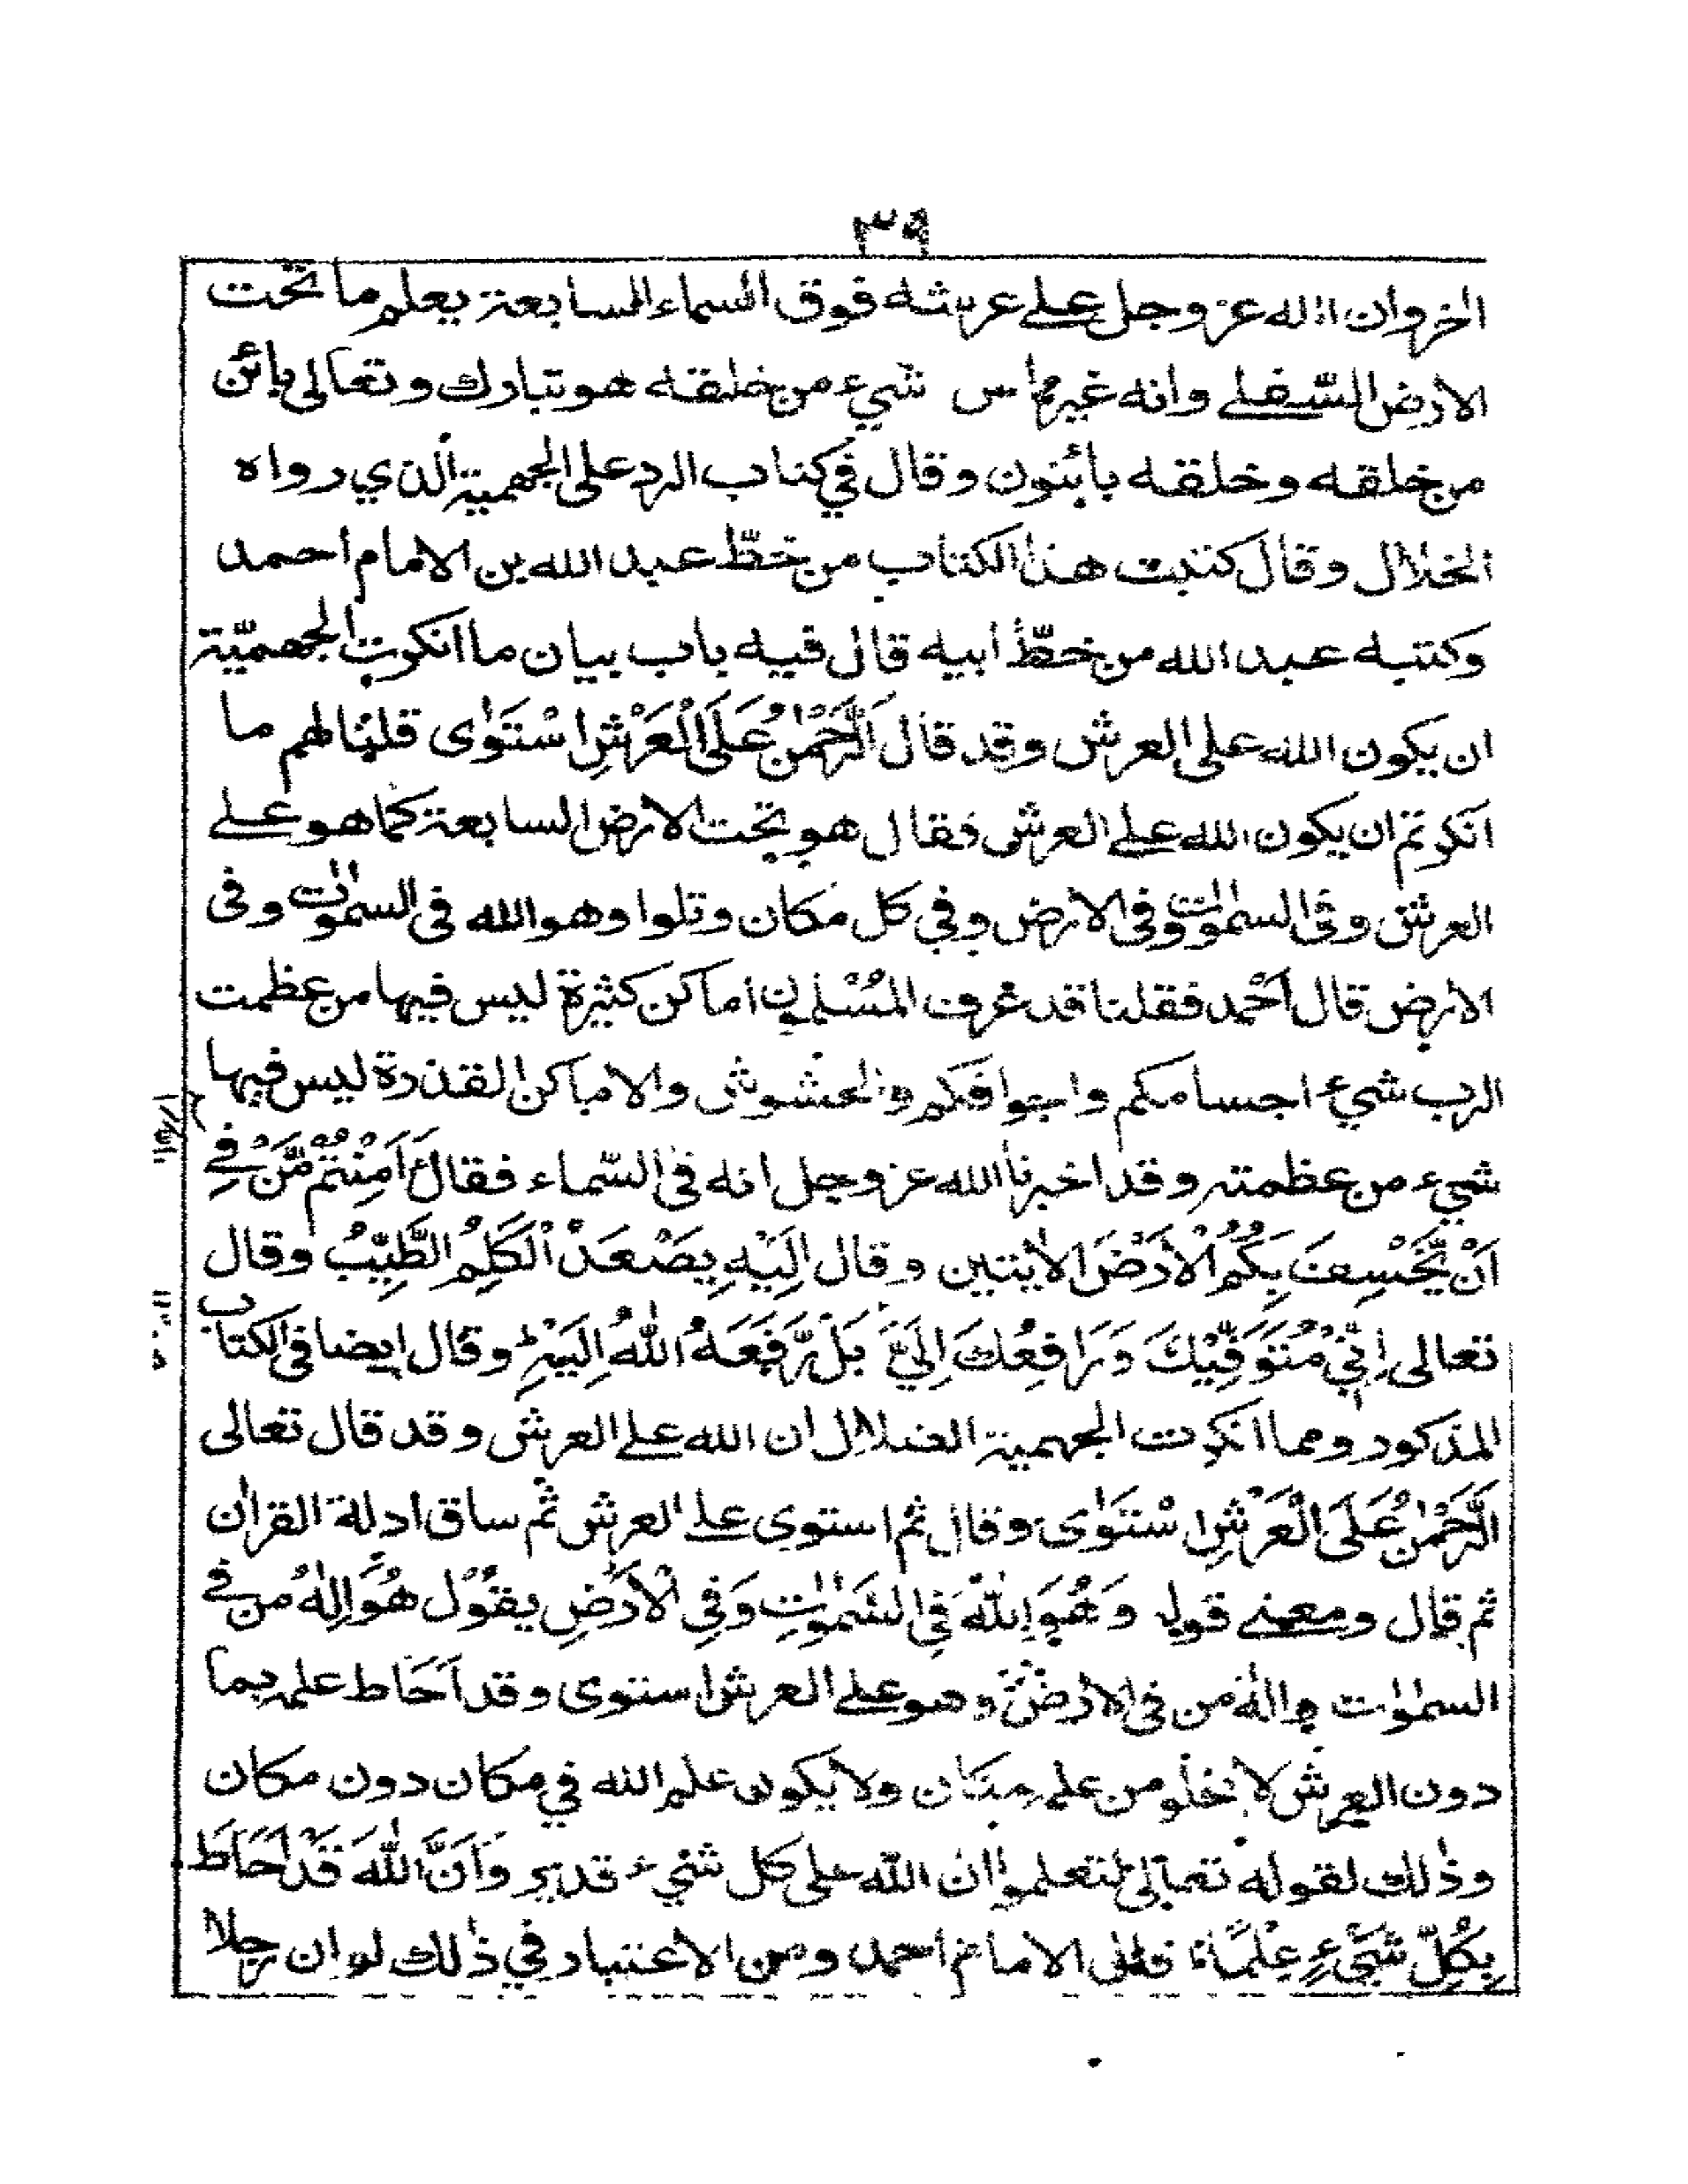 ٣٩
الخر وان الله عز وجل على عرشه فوق السماء السابعة يعلم ما تحت
الارض السّفلے وانه غير مماس شيء من خلقه هو تبارك وتعالى بائن
من خلقه وخلقه بائنون وقال في كتاب الرد على الجهمية الذي رواه
الخلال وقال كتبت هذا الكتاب من خطّ عبد الله بن الامام احمد
وكتبه عبد الله من خطّ ابيه قال فيه باب بيان ما انكرت الجهميّة
ان يكون الله على العرش وقد قال اَلرَّحْمٰنُ عَلَى الْعَرْشِ اسْتَوٰى قلنا لهم ما
انكرتم ان يكون الله علے العرش فقال هو تحت الارض السابعة كما هو علے
العرش وفى السمٰوٰت وفى الارض وفي كل مكان وتلوا وهو الله فى السمٰوٰت وفى
الارض قال اَحْمد فقلنا قد عرف المُسْلمون اماكن كثيرة ليس فيها من عظمت
الرب شيء اجسامكم واجوافكم والحشوش والاماكن القذرة ليس فيها
شيء من عظمته وقد اخبرنا الله عز وجل انه فى السّماء فقال ءَاَمِنْتُمْ مَّنْ فِے
اَنْ يَّخْسِفَ بِكُمُ الْاَرْضَ الاٰيتين وقال اِلَيْهِ يَصْعَدُ الْكَلِمُ الطَّيِّبُ وقال
تعالى اِنِّيْ مُتَوَفِّيْكَ وَرَافِعُكَ اِلَيَّ بَلْ رَّفَعَهُ اللّٰهُ اِلَيْهِ وقال ايضا فى الكتاب
المذكور ومما انكرت الجهمية الضلال ان الله علے العرش وقد قال تعالى
اَلرَّحْمٰنُ عَلَى الْعَرْشِ اسْتَوٰى وقال ثم استوى علے العرش ثم ساق ادلة القراٰن
ثم قال ومعنے قوله وَهُوَ اللّٰهُ فِي السَّمٰوٰتِ وَفِي الْاَرْضِ يقول هُوَ اِلٰهُ من فے
السمٰوٰت واله من فى الارض وهو علے العرش استوى وقد اَحَاط علمه بما
دون العرش لا يخلو من علمه مكان ولا يكون علم الله في مكان دون مكان
وذٰلك لقوله تعالىٰ لتعلموا ان الله على كل شيء قدير وَاَنَّ اللّٰهَ قَدْ اَحَاطَ
بِكُلِّ شَيْءٍ عِلْمًا قال الامام احمد ومن الاعتبار في ذٰلك لو ان رجلا